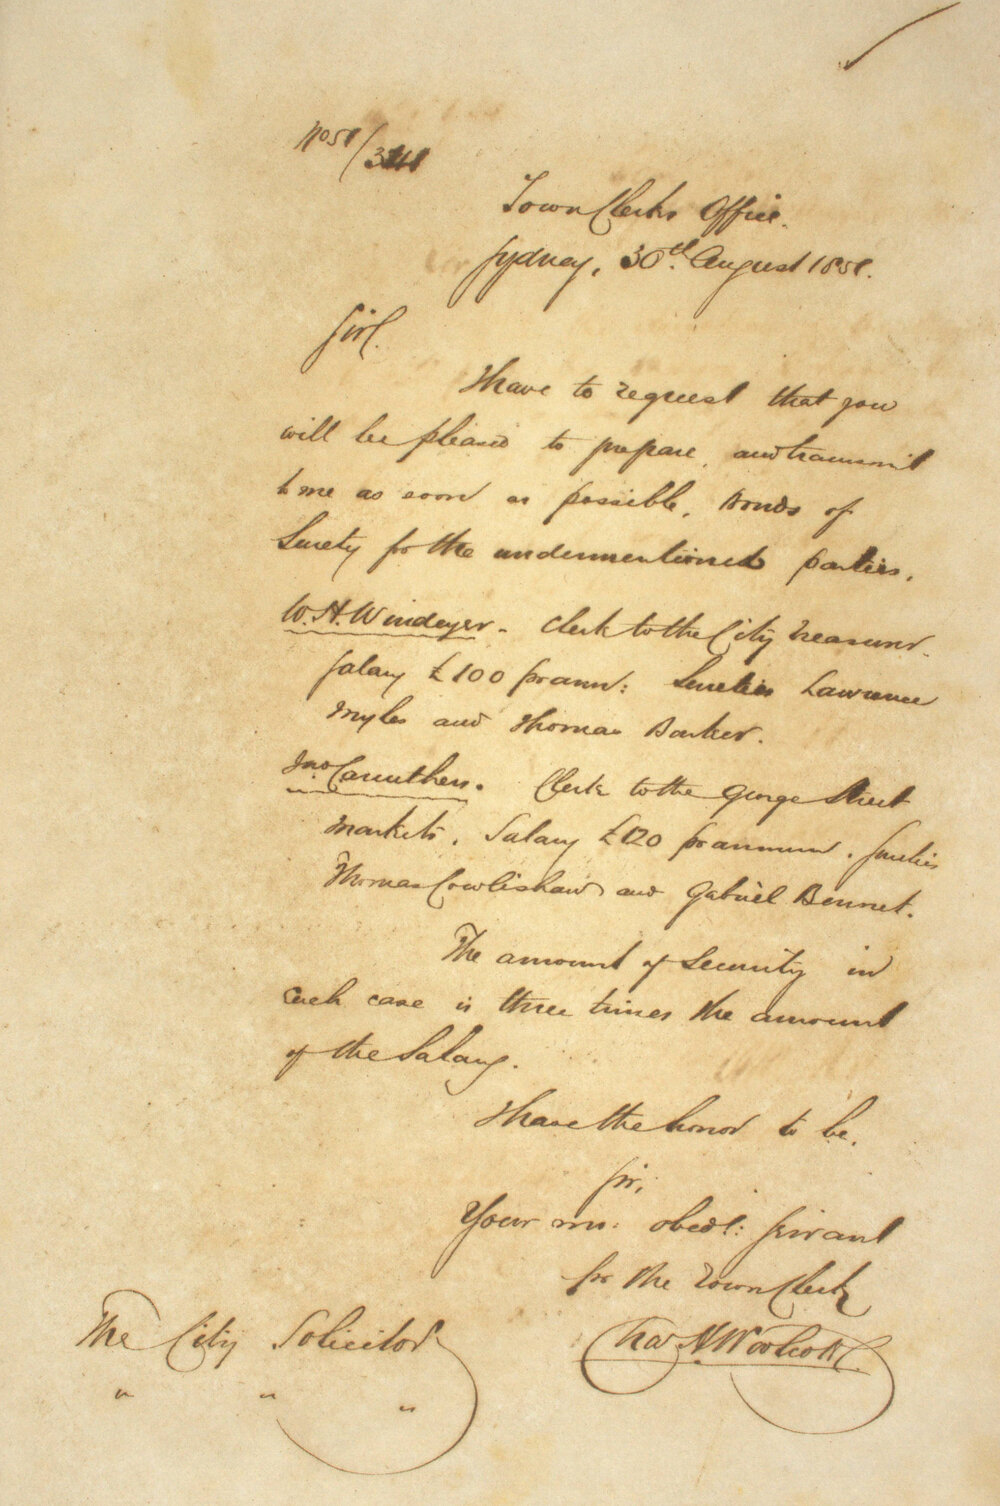 No 51/3
Town Clerks Office.
Sydney, 30th. August 1851.
Sir.
I have to request that you
will be pleased to prepare, and transmit
to me as soon as possible, Bonds of
Surety for the undermentioned parties.
W. H. Windeyer. Clerk to the City Treasurer.
Salary £100 pr ann: Sureties Lawrence
Myles and Thomas Barker.
Jno Caruthers. Clerk to the George Street
Markets. Salary £120 pr annum. Sureties
Thomas Cowlishaw and Gabriel Bennet.
The amount of Security in
each case is three times the amount
of the Salary.
I have the honor to be.
Sir,
Your mo: obedt: Servant
for the Town Clerk
Chas H Woolcott
The City Solicitor
" " "